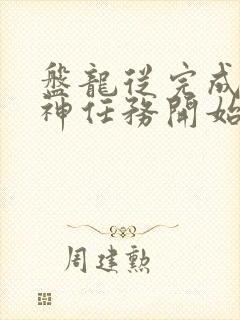 盤龍從完成
神任務開始
周建勲